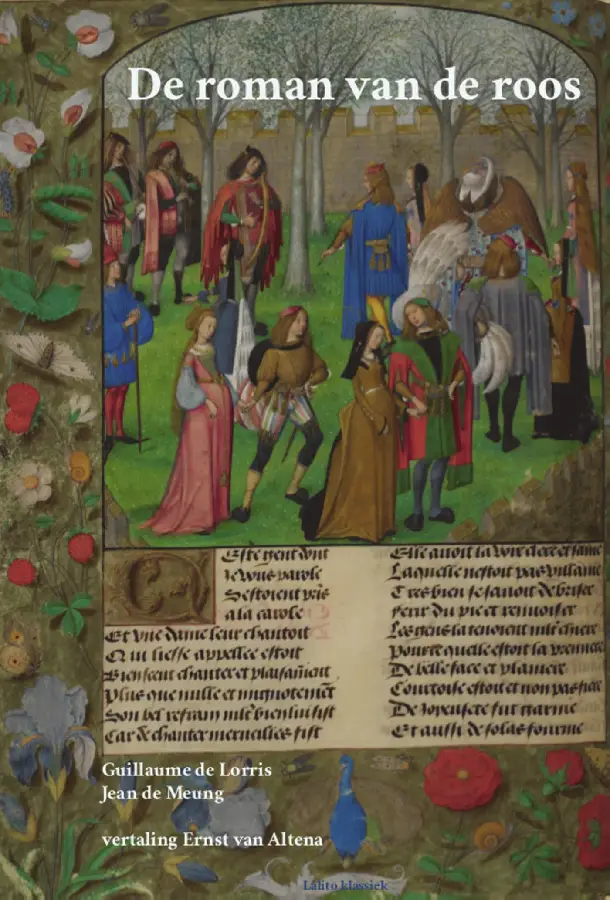 De roman van de roos
Ceste gent dont
Je vous parole
Sestoient pris
a la carole
Et vne dame leur chantoit
Qui liesse appellee estoit
Bien seut chanter et plaisamment
Plus que nulle et mignotement
Son bel refrain mlt bien lui fist
Car de chanter merueilles fist
Elle auoit la voix clere et saine
Laquelle nestoit pas villaine
Tres bien se sauoit debriser
ferir du pie et renuoiser
Les gens la tenoient mlt chiere
Pource quelle estoit la premiere
De belle face et planiere
Courtoise estoit et non pas fiere
De ioyeusete fut
Et aussi de solas
Guillaume de Lorris
Jean de Meung
vertaling Ernst van Altena
Lalito klassiek